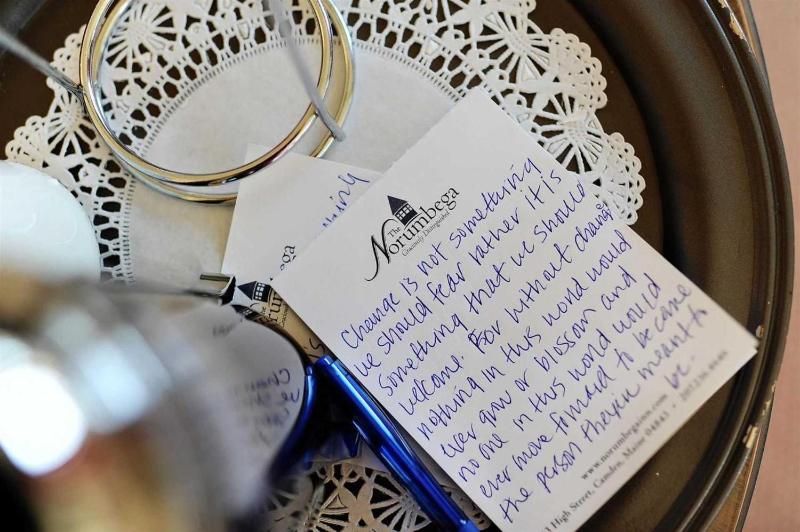 The
Norumbega
Graciously Distinguished
Change is not something
we should fear rather it is
something that we should
welcome. For without change
nothing in this world would
ever grow or blossom and
no one in this world would
ever move forward to become
the person they're meant to
be.
www.norumbegainn.com
High Street, Camden, Maine 04843 •